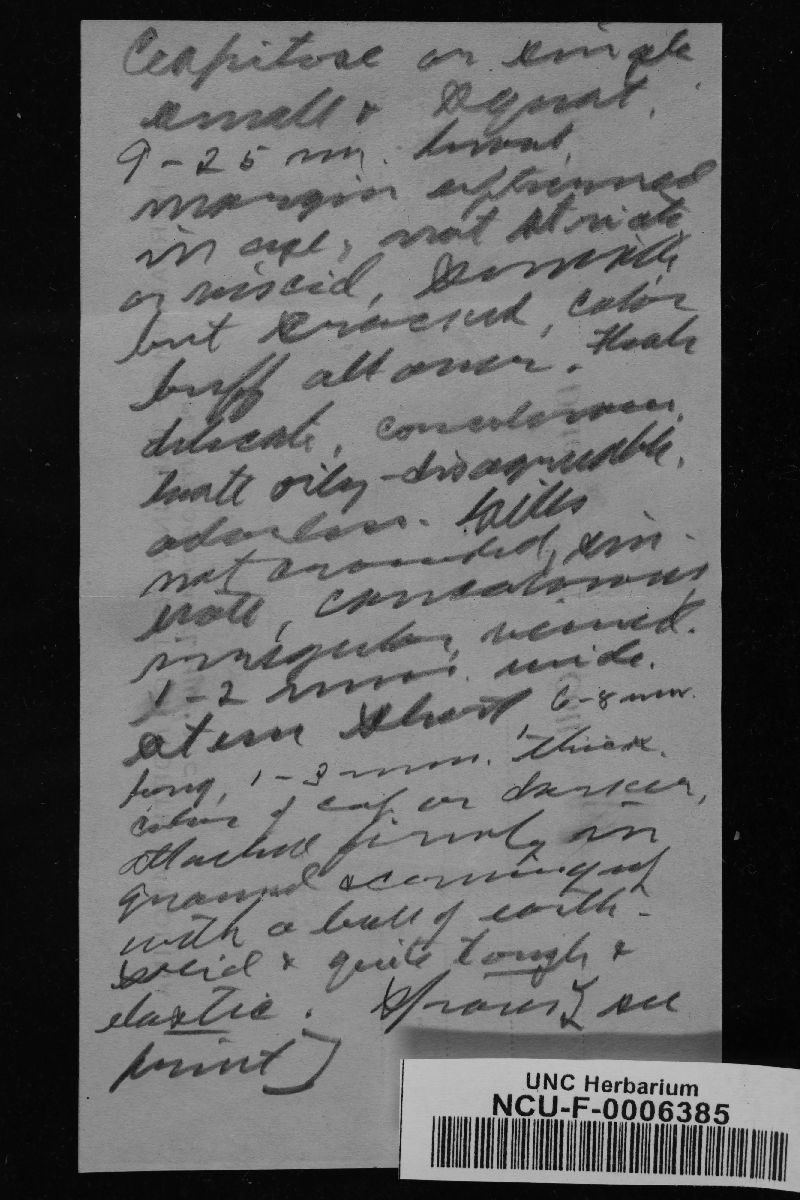 Cespitose or single
small & squat.
9-25 mm. broad,
margin upturned
in age, not striate
or viscid, 
but cracked, color
buff all over. Flesh
delicate, concolorous,
taste oily-disagreeable,
odorless. Gills
not crowded, sin-
uate, concolorous,
irregular, veined.
1-2 mm. wide.
Stem short 6-8 mm.
long, 1-3 mm. thick.
color of cap or darker,
attached firmly in
ground & coming up
with a ball of earth-
solid & quite tough &
elastic. Spores [see
print]
UNC Herbarium
NCU-F-0006385